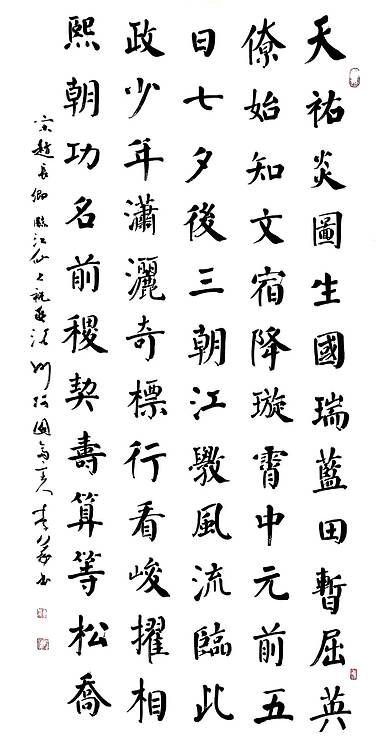 天祐炎圖生國瑞藍田暫屈英
僚始知文宿降璇霄中元前五
日七夕後三朝江斅風流臨此
政少年瀟灑奇標行看峻擢相
熙朝功名前稷契壽算等松喬
宋趙長卿臨江仙上祝